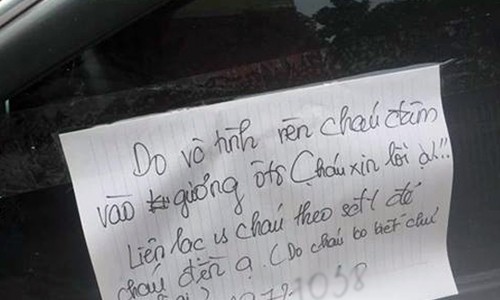 Do vô tình nên cháu đâm
vào gương ôtô (cháu xin lỗi ạ!!
Liên lạc vs cháu theo số đt để
cháu đền ạ. (Do cháu ko biết chủ